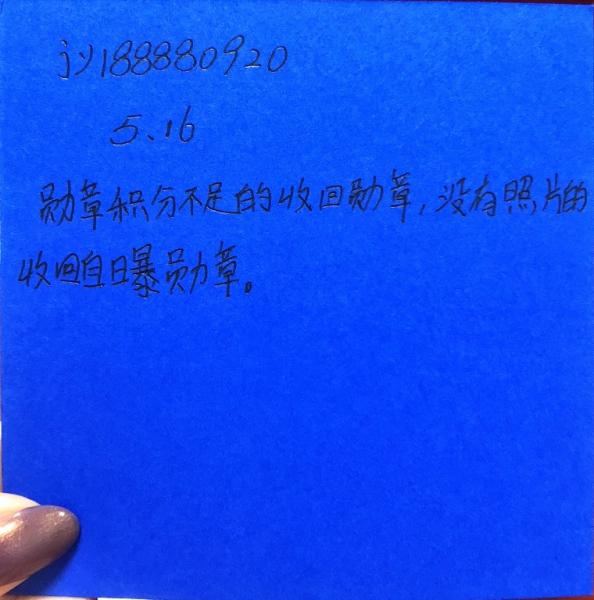 jy188880920
5.16
勋章积分不足的收回勋章,没有照片的
收回自曝勋章。